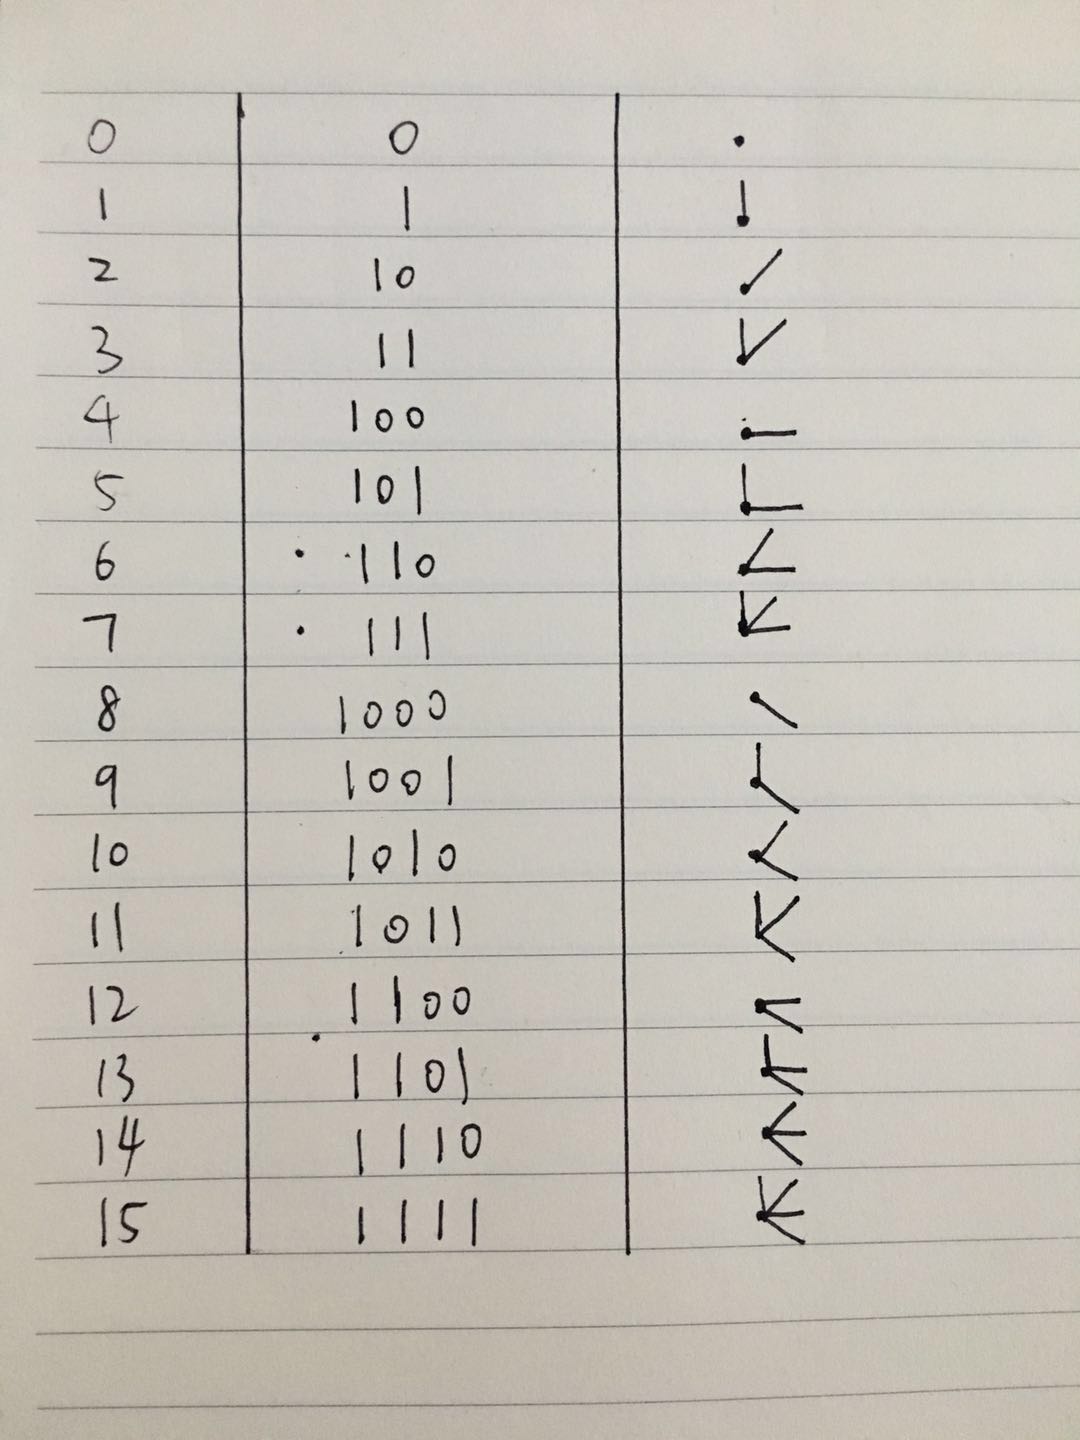 0 0
1 1
2 10
3 11
4 100
5 101
6 110
7 111
8 1000
9 1001
10 1010
11 1011
12 1100
13 1101
14 1110
15 1111